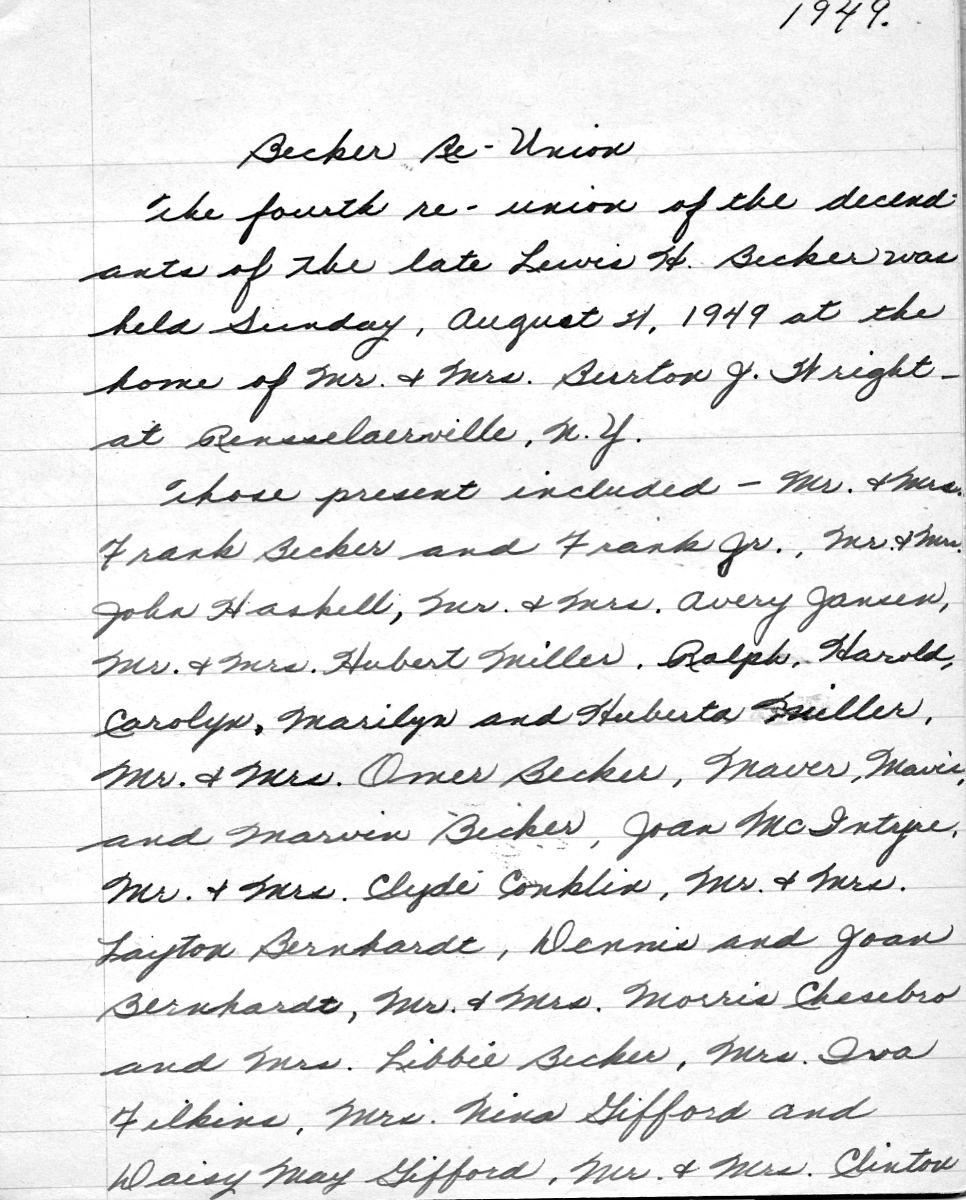 1949.
Becker Re-Union
The fourth re-union of the decend-
ants of the late Lewis H. Becker was
held Sunday, August 21, 1949 at the
home of Mr. & Mrs. Burton J. Wright -
at Rensselaerville, N.Y.
Those present included - Mr. & Mrs.
Frank Becker and Frank Jr., Mr. & Mrs.
John Haskell, Mr. & Mrs. Avery Jansen,
Mr. & Mrs. Hubert Miller, Ralph, Harold,
Carolyn, Marilyn and Huberta Miller,
Mr. & Mrs. Omer Becker, Maver, Mavis,
and Marvin Becker, Joan McIntyre,
Mr. & Mrs. Clyde Conklin, Mr. & Mrs.
Layton Bernhardt, Dennis and Joan
Bernhardt, Mr. & Mrs. Morris Chesebro
and Mrs. Libbie Becker, Mrs. Iva
Filkins, Mrs. Nina Gifford and
Daisy May Gifford, Mr. & Mrs. Clinton